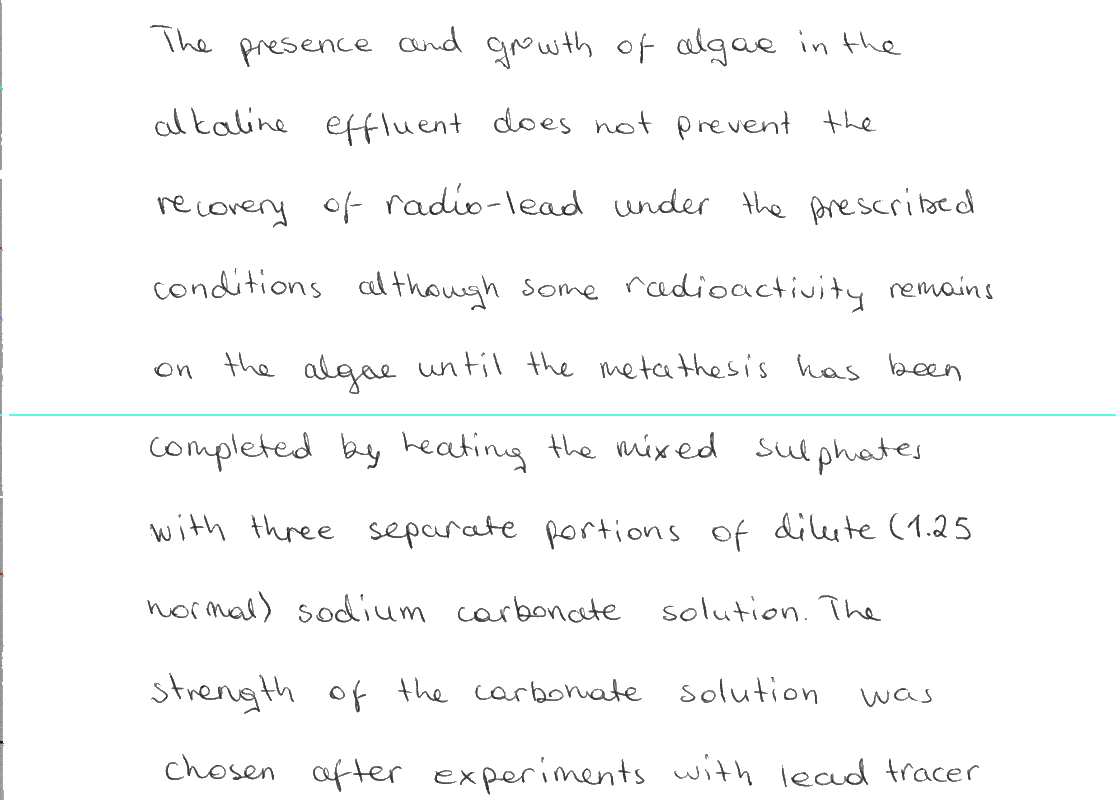 The presence and growth of algae in the
alkaline effluent does not prevent the
recovery of radio-lead under the prescribed
conditions although some radioactivity remains
on the algae until the metathesis has been
completed by heating the mixed sulphates
with three separate portions of dilute (1.25
normal) sodium carbonate solution. The
strength of the carbonate solution was
chosen after experiments with lead tracer